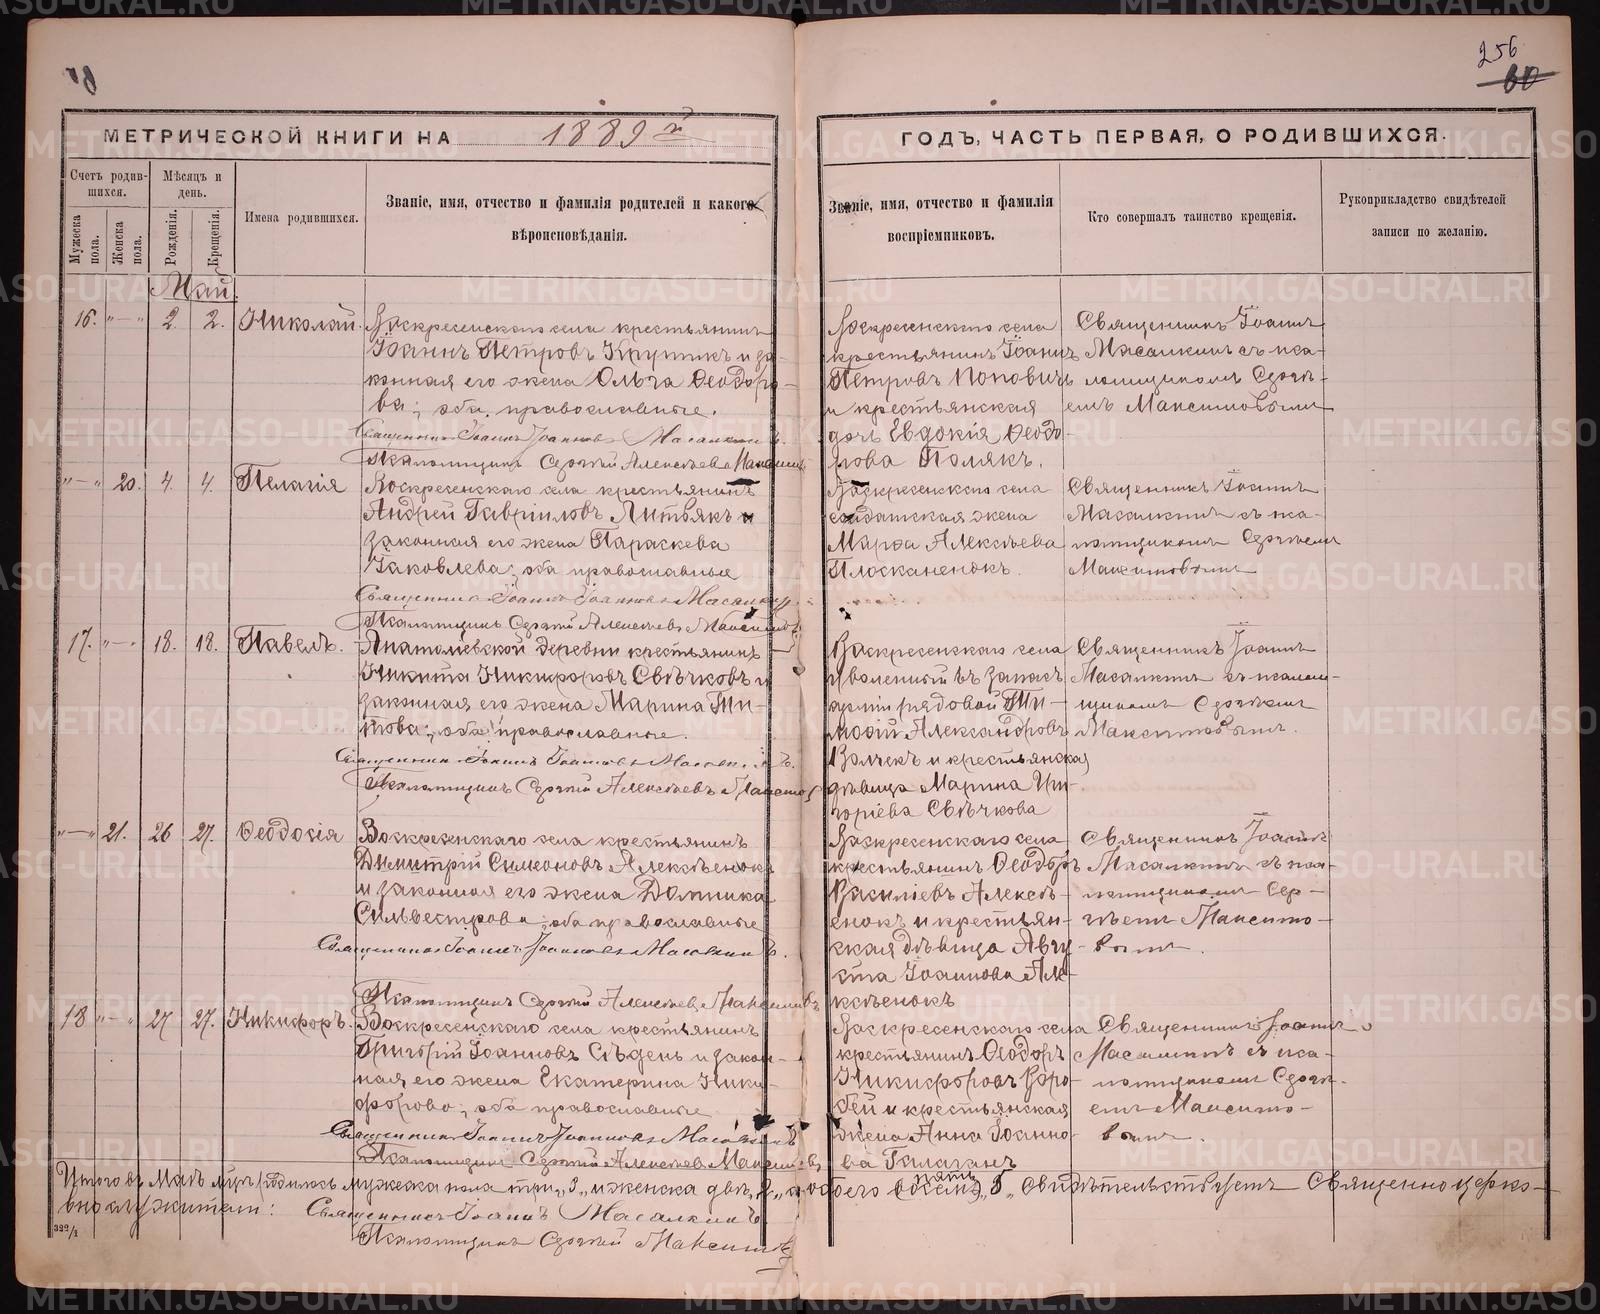 256
60
МЕТРИЧЕСКОЙ КНИГИ НА 1889 й
ГОДЪ, ЧАСТЬ ПЕРВАЯ, О РОДИВШИХСЯ.
Счетъ родив-
шихся.
Мужеска пола.
Женска пола.
Мѣсяцъ и
день.
Рожденія.
Крещенія.
Имена родившихся.
Званіе, имя, отчество и фамилія родителей и какого
вѣроисповѣданія.
Званіе, имя, отчество и фамилія
воспріемниковъ.
Кто совершалъ таинство крещенія.
Рукоприкладство свидѣтелей
записи по желанію.
Май.
16. "—" 2. 2. Николай.
Воскресенскаго села крестьянинъ
Іоаннъ Петровъ Крупикъ и за-
конная его жена Ольга Ѳеодоро-
ва; оба православные.
Священникъ Іоаннъ Іоанновъ Масалкинъ.
Псаломщикъ Сергѣй Алексѣевъ Максимовъ
Воскресенскаго села
крестьянинъ Іоаннъ
Петровъ Поповичъ
и крестьянская
дочь Евдокія Ѳеодо-
рова Полякъ.
Священникъ Іоаннъ
Масалкинъ съ пса-
ломщикомъ Сергѣ-
емъ Максимовымъ
"—" 20. 4. 4. Пелагія
Воскресенскаго села крестьянинъ
Андрей Гавріиловъ Литвякъ и
законная его жена Параскева
Іаковлева; оба православные
Священникъ Іоаннъ Іоанновъ Масалкинъ
Псаломщикъ Сергѣй Алексѣевъ Максимовъ
Воскресенскаго села
солдатская жена
Марѳа Алексѣева
Плосканенокъ.
Священникъ Іоаннъ
Масалкинъ съ пса-
ломщикомъ Сергѣемъ
Максимовымъ
17. "—" 18. 18. Павелъ.
Анатоліевской деревни крестьянинъ
Никита Никифоровъ Свѣчковъ и
законная его жена Марина Ти-
това; оба православные.
Священникъ Іоаннъ Іоанновъ Масалкинъ.
Псаломщикъ Сергѣй Алексѣевъ Максимовъ
Воскресенскаго села
уволенный въ запасъ
арміи рядовой Ти-
моѳій Александровъ
Волчекъ и крестьянская
дѣвица Марина Гри-
горіева Свѣчкова
Священникъ Іоаннъ
Масалкинъ съ псалом-
щикомъ Сергѣемъ
Максимовымъ.
"—" 21. 26 27. Ѳеодосія
Воскресенскаго села крестьянинъ
Димитрій Симеоновъ Алексѣенокъ
и законная его жена Домника
Сильвестрова; оба православные
Священникъ Іоаннъ Іоанновъ Масалкинъ.
Псаломщикъ Сергѣй Алексѣевъ Максимовъ
Воскресенскаго села
крестьянинъ Ѳеодоръ
Василіевъ Алексѣ-
енокъ и крестьян-
ская дѣвица Авгу-
ста Іоаннова Але-
ксѣенокъ
Священникъ Іоаннъ
Масалкинъ съ пса-
ломщикомъ Сер-
гѣемъ Максимо-
вымъ.
18 "—" 27 27. Никифоръ.
Воскресенскаго села крестьянинъ
Григорій Іоанновъ Сѣдень и закон-
ная его жена Екатерина Ники-
форова; оба православные
Священникъ Іоаннъ Іоанновъ Масалкинъ
Псаломщикъ Сергѣй Алексѣевъ Максимовъ
Воскресенскаго села
крестьянинъ Ѳеодоръ
Никифоровъ Воро-
бей и крестьянская
жена Анна Іоанно-
ва Галаганъ
Священникъ Іоаннъ
Масалкинъ съ пса-
ломщикомъ Сергѣ-
емъ Максимо-
вымъ.
Итого въ Маѣ м-цѣ родилось мужеска пола три „3„ и женска двѣ „2„ а обоего пять „5„ Свидѣтельствуетъ Священно церко-
вно служители: Священникъ Іоаннъ Масалкинъ
Псаломщикъ Сергѣй Максимовъ
METRIKI.GASO-URAL.RU